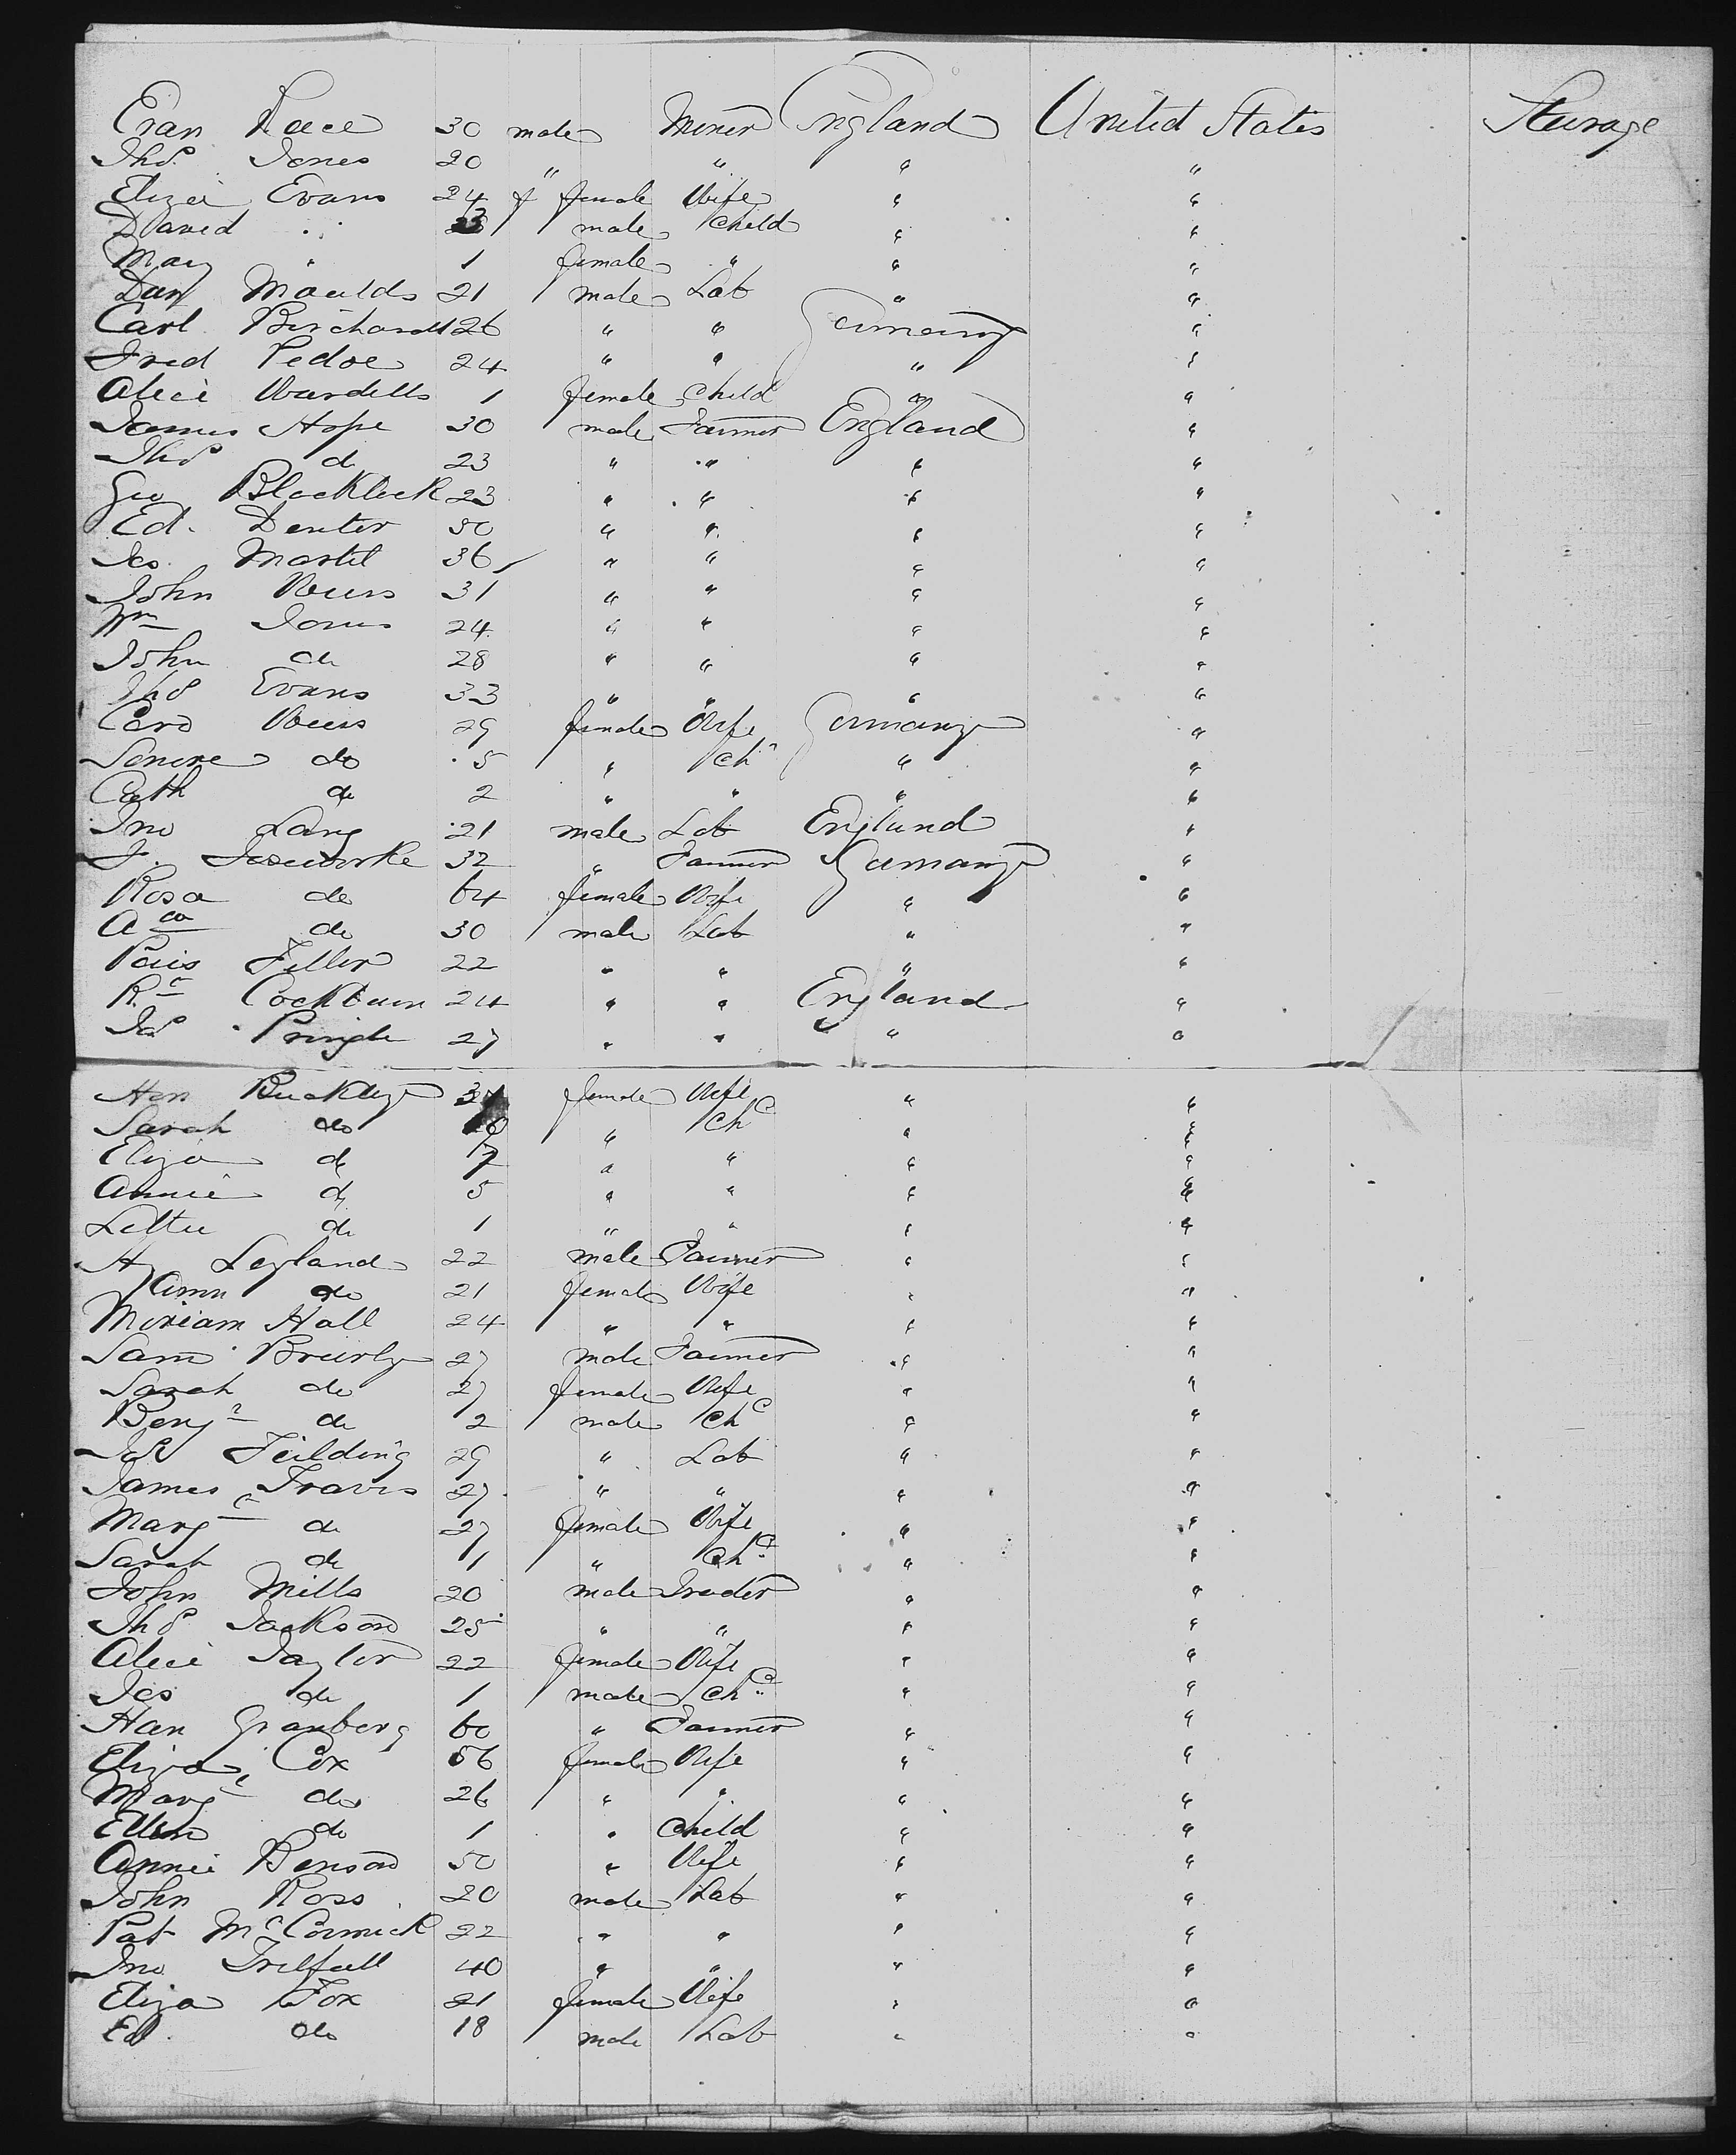 Evan Reece 30 male Miner England United States Steerage
Thos Jones 20 " " " "
Eliza Evans 24 f female Wife " "
David " male Child " "
Mary " 1 female " " "
Dan Moulds 21 male Lab " "
Carl 26 " " Germany "
Fred 24 " " " "
Alice 1 female Child " "
James Hope 30 male Farmer England "
Thos do 23 " " " "
Geo Blacklock 23 " " " "
Ed. Denter 50 " " " "
Jas. Martil 36 " " " "
John 31 " " " "
Wm Jones 24 " " " "
John do 28 " " " "
Thos Evans 33 " " " "
Caro 29 female Wife Germany "
do 5 " Ch " "
Cath do 2 " " " "
Jno Lang 21 male Lab England "
J. 32 " Farmer Germany "
Rosa do 64 female Wife " "
do 30 male Lab " "
Filler 22 " " " "
Cockburn 24 " " England "
Jas Pringle 27 " " " "
Han Buckley female Wife " "
Sarah do " Ch " "
Eliza do 7 " " " "
Annie do 5 " " " "
Lettie do 1 " " " "
Hy Leyland 22 male Farmer " "
Ann do 21 female Wife " "
Miriam Hall 24 " " " "
Sam Brierly 27 male Farmer " "
Sarah do 27 female Wife " "
Benj do 2 male Ch " "
Feilding 29 " Lab " "
James Travis 27 " " " "
Marg do 27 female Wife " "
Sarah do 1 " Ch " "
John Mills 20 male Trader " "
Thos Jackson 25 " " " "
Alice Taylor 22 female Wife " "
Jas do 1 male Ch " "
Han Granberg 60 " Farmer " "
Eliza Cox 56 female Wife " "
Marg do 26 " " " "
Ellen do 1 " Child " "
Annie Benson 50 " Wife " "
John Ross 20 male Lab " "
Pat McCormick 22 " " " "
Jno Trelfall 40 " " " "
Eliza Fox 21 female Wife " "
Ed. do 18 male Lab " "